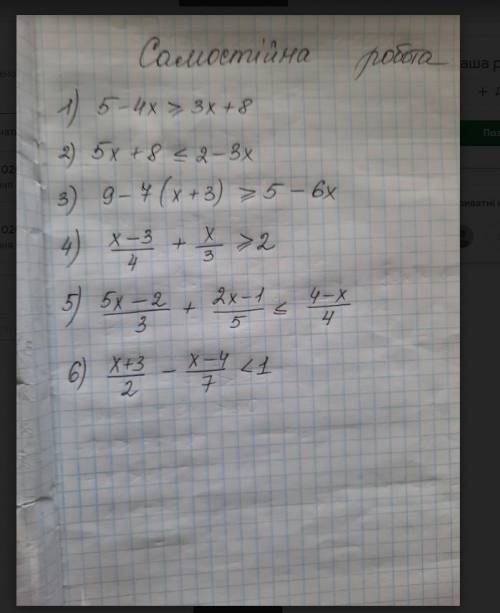 Самостійна робота
1) 5 - 4x ⩾ 3x + 8
2) 5x + 8 ≤ 2 - 3x
3) 9 - 7 (x + 3) ⩾ 5 - 6x
4) \frac{x-3}{4} + \frac{x}{3} ⩾ 2
5) \frac{5x-2}{3} + \frac{2x-1}{5} ≤ \frac{4-x}{4}
6) \frac{x+3}{2} - \frac{x-4}{7} < 1